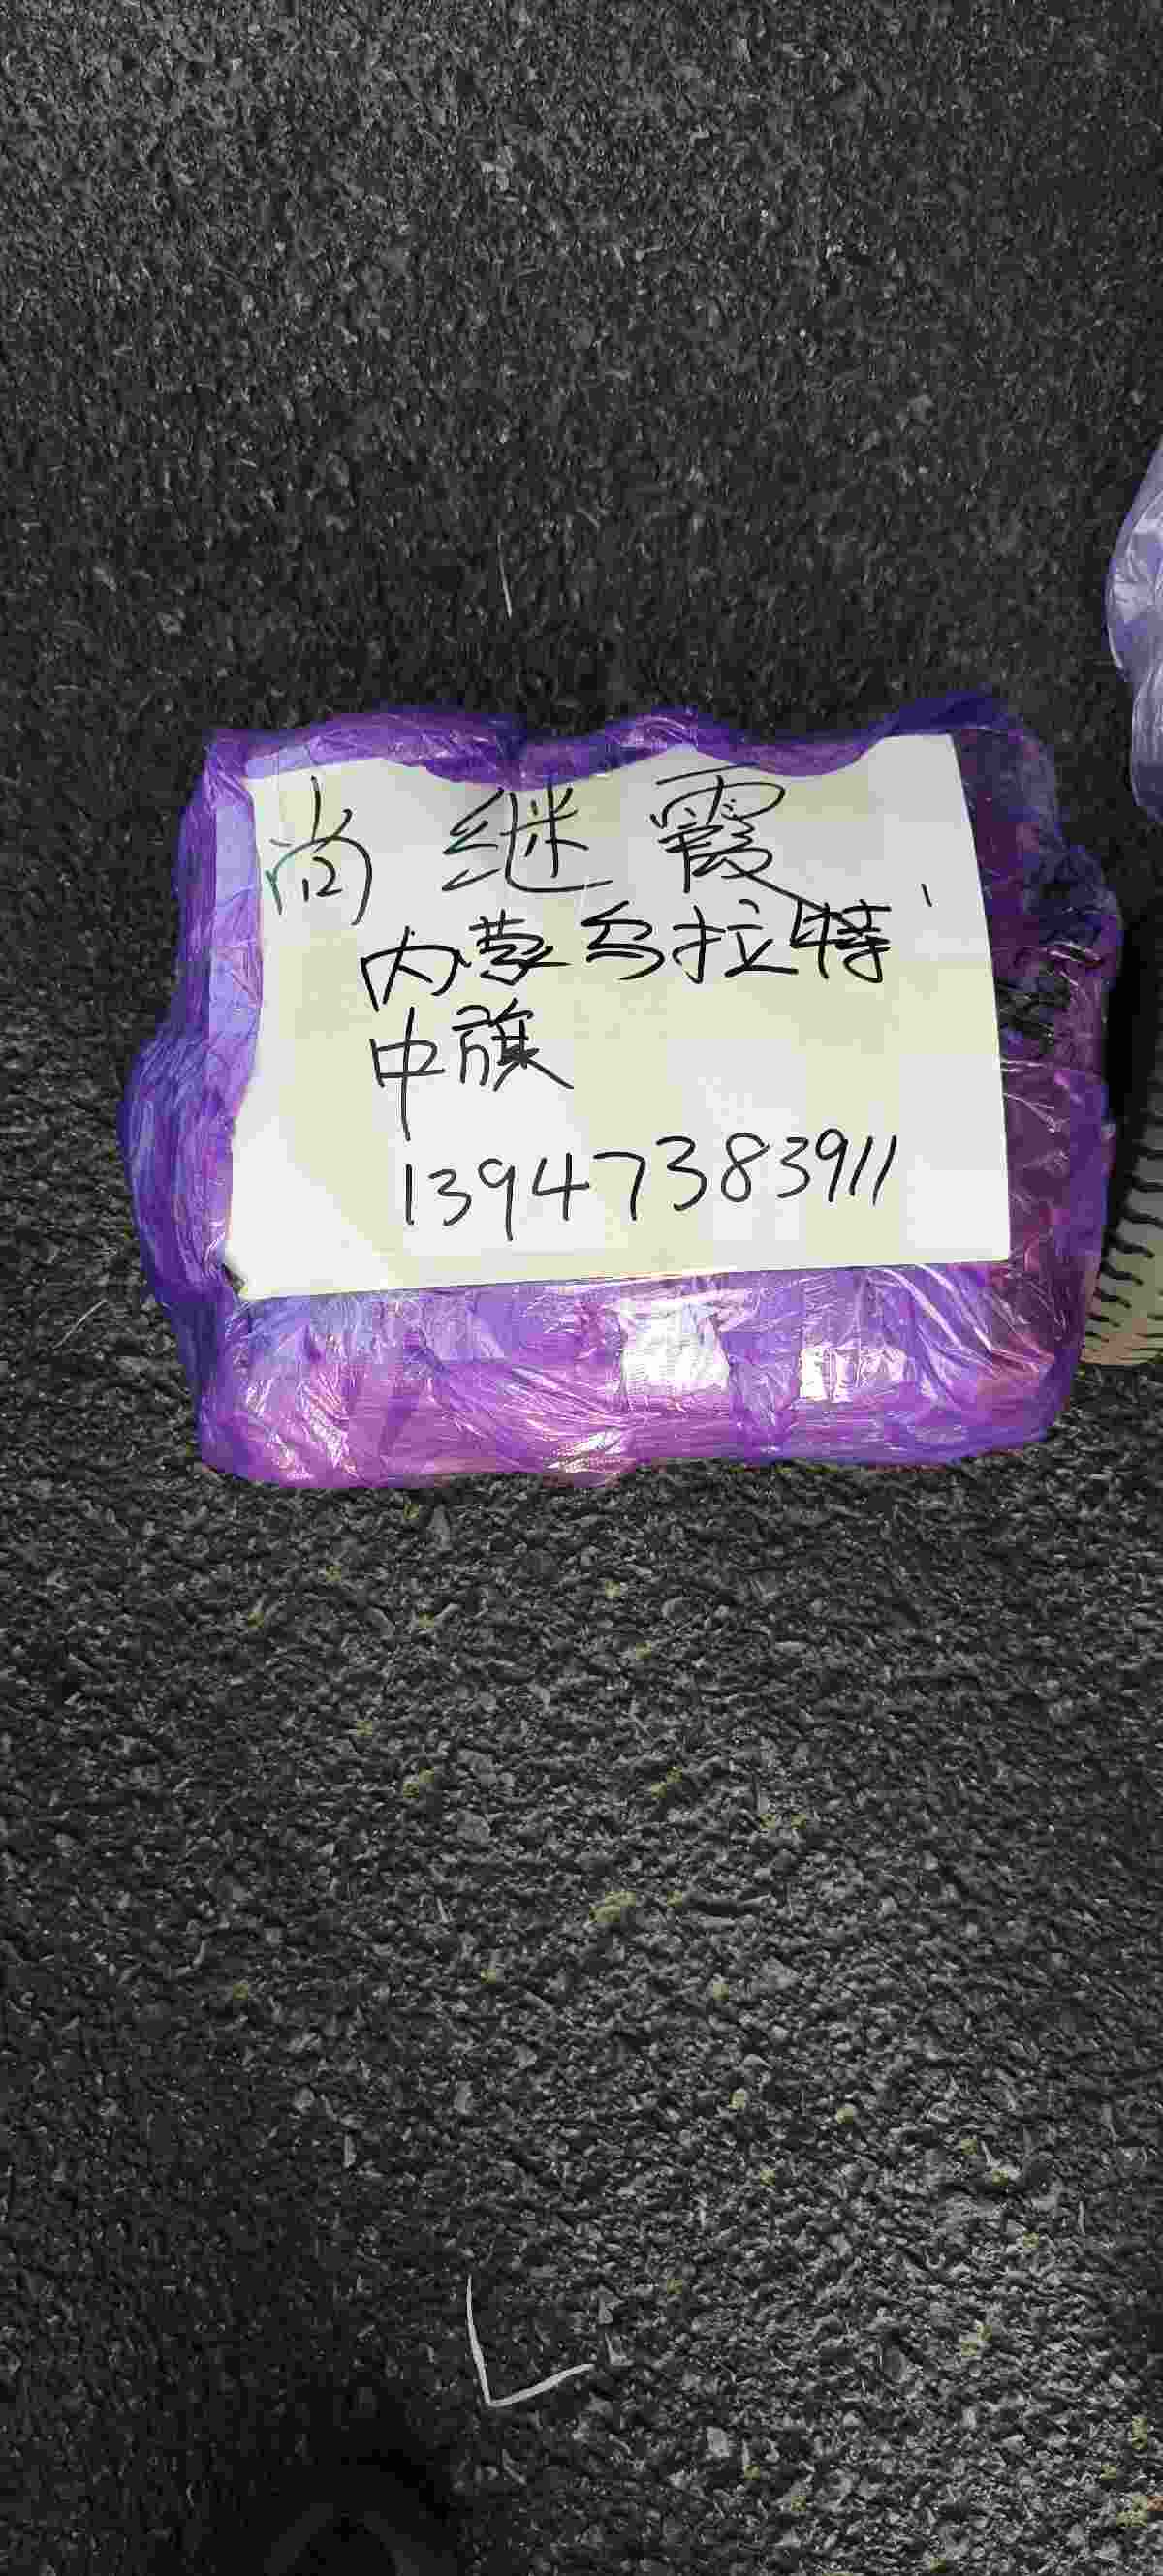 尚继霞
内蒙乌拉特
中旗
13947383911